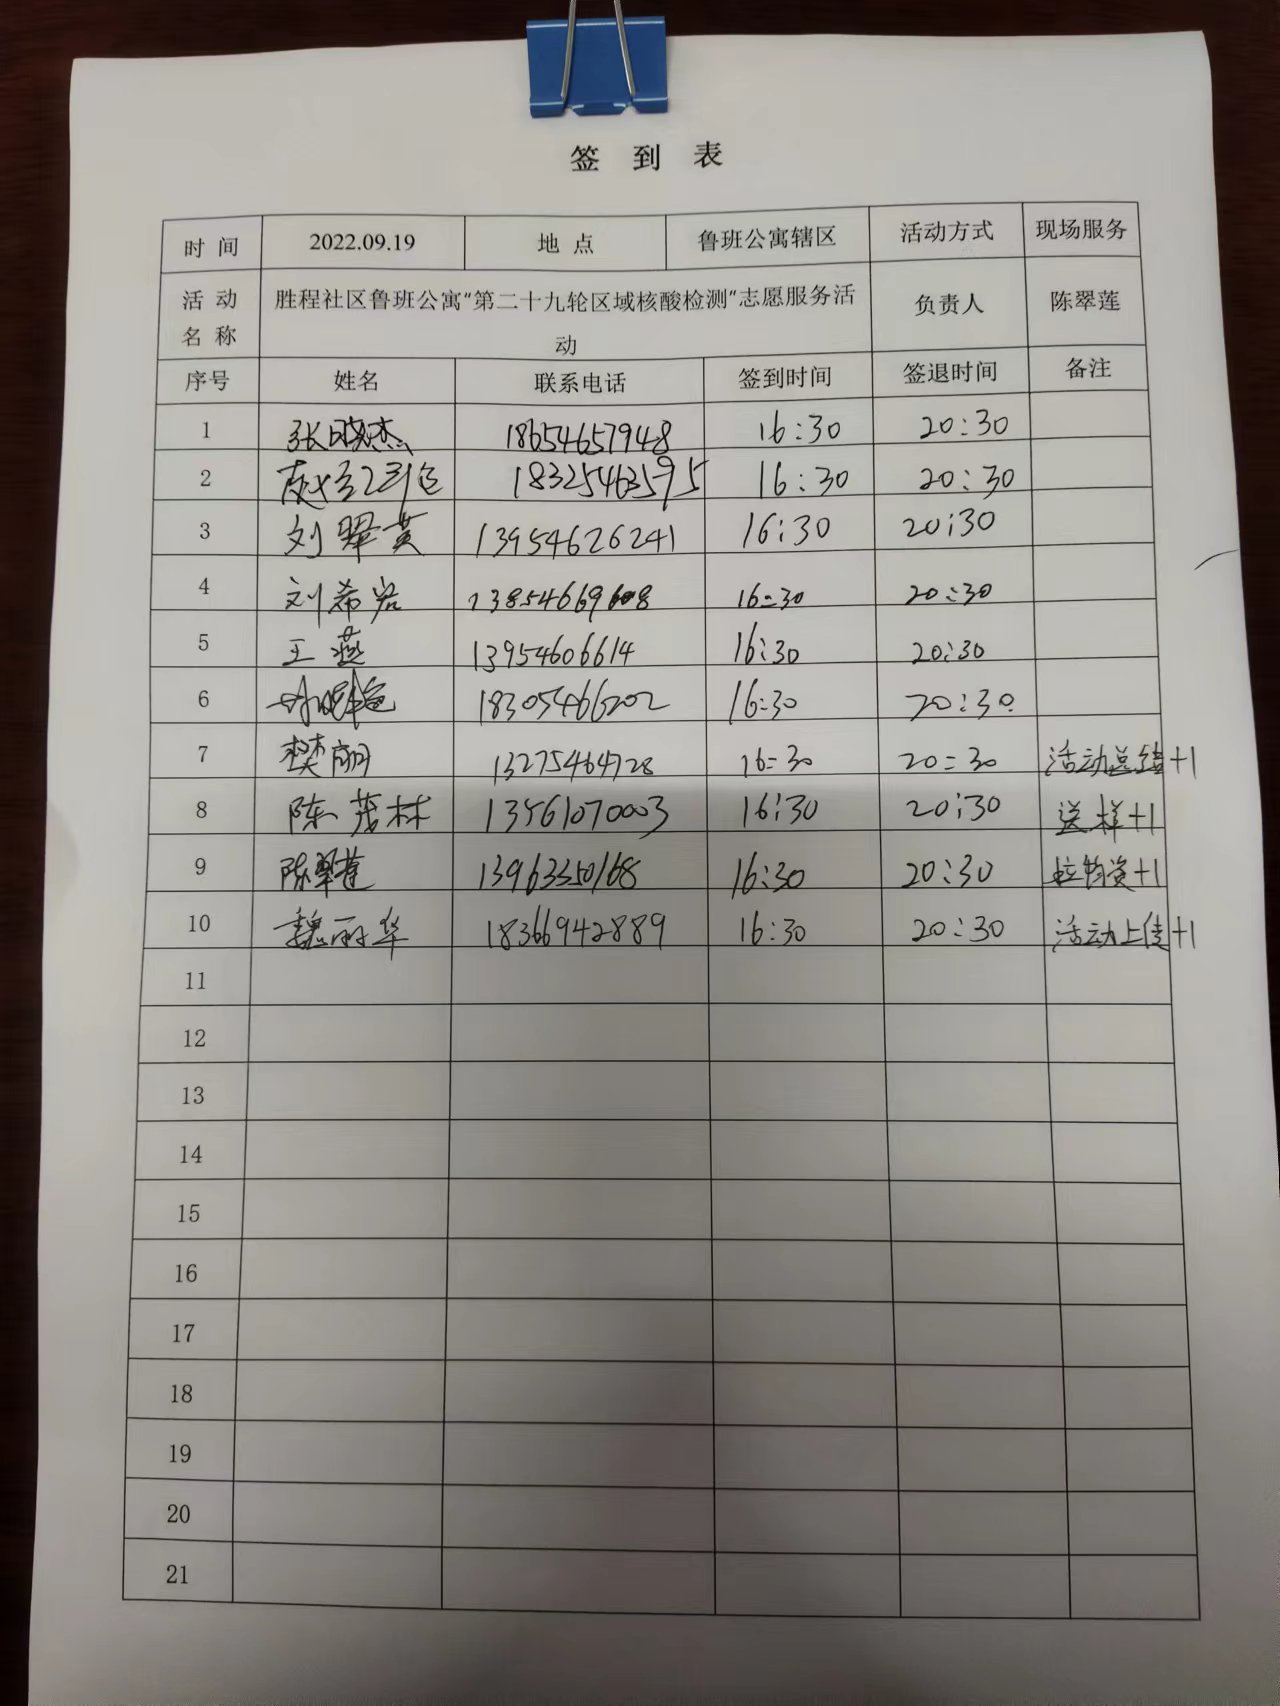 签 到 表
时 间 2022.09.19 地 点 鲁班公寓辖区 活动方式 现场服务
活 动 名 称 胜程社区鲁班公寓“第二十九轮区域核酸检测”志愿服务活动 负责人 陈翠莲
序号 姓名 联系电话 签到时间 签退时间 备注
1 张晓杰 18654657948 16:30 20:30
2 18325463595 16:30 20:30
3 刘翠英 13954626241 16:30 20:30
4 刘希岩 16:30 20:30
5 王燕 13954606614 16:30 20:30
6 18305466202 16:30 20:30
7 樊丽 13275464728 16:30 20:30 活动总结+1
8 陈茂林 13561070003 16:30 20:30 送样+1
9 陈翠莲 13963350168 16:30 20:30 拉物资+1
10 魏丽华 18366942889 16:30 20:30 活动上传+1
11
12
13
14
15
16
17
18
19
20
21